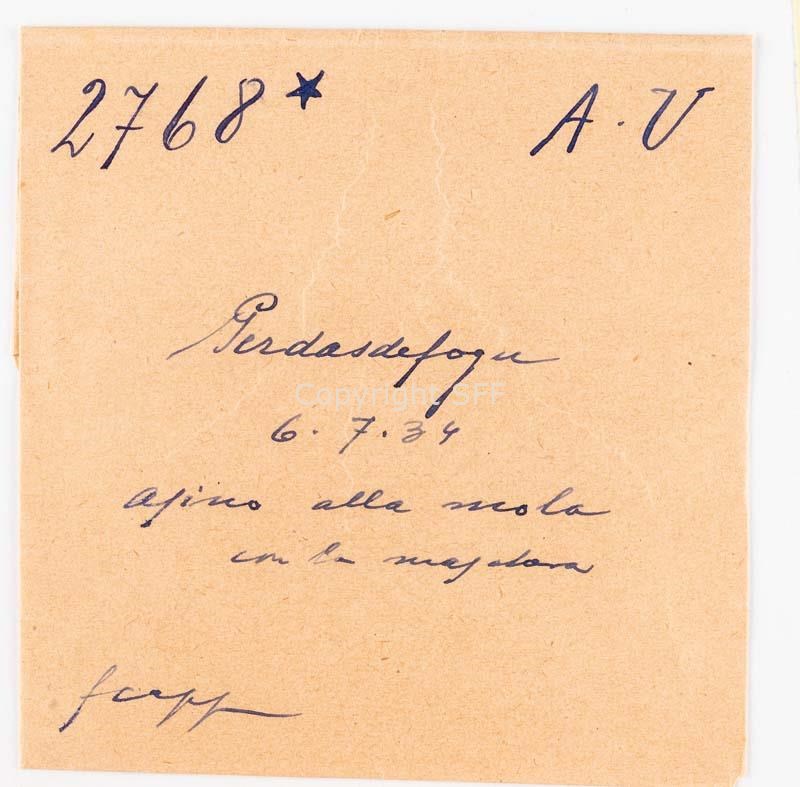 2768* A. V
Perdasdefogu
Copyright SFF
6. 7. 34
asino alla mola
con la